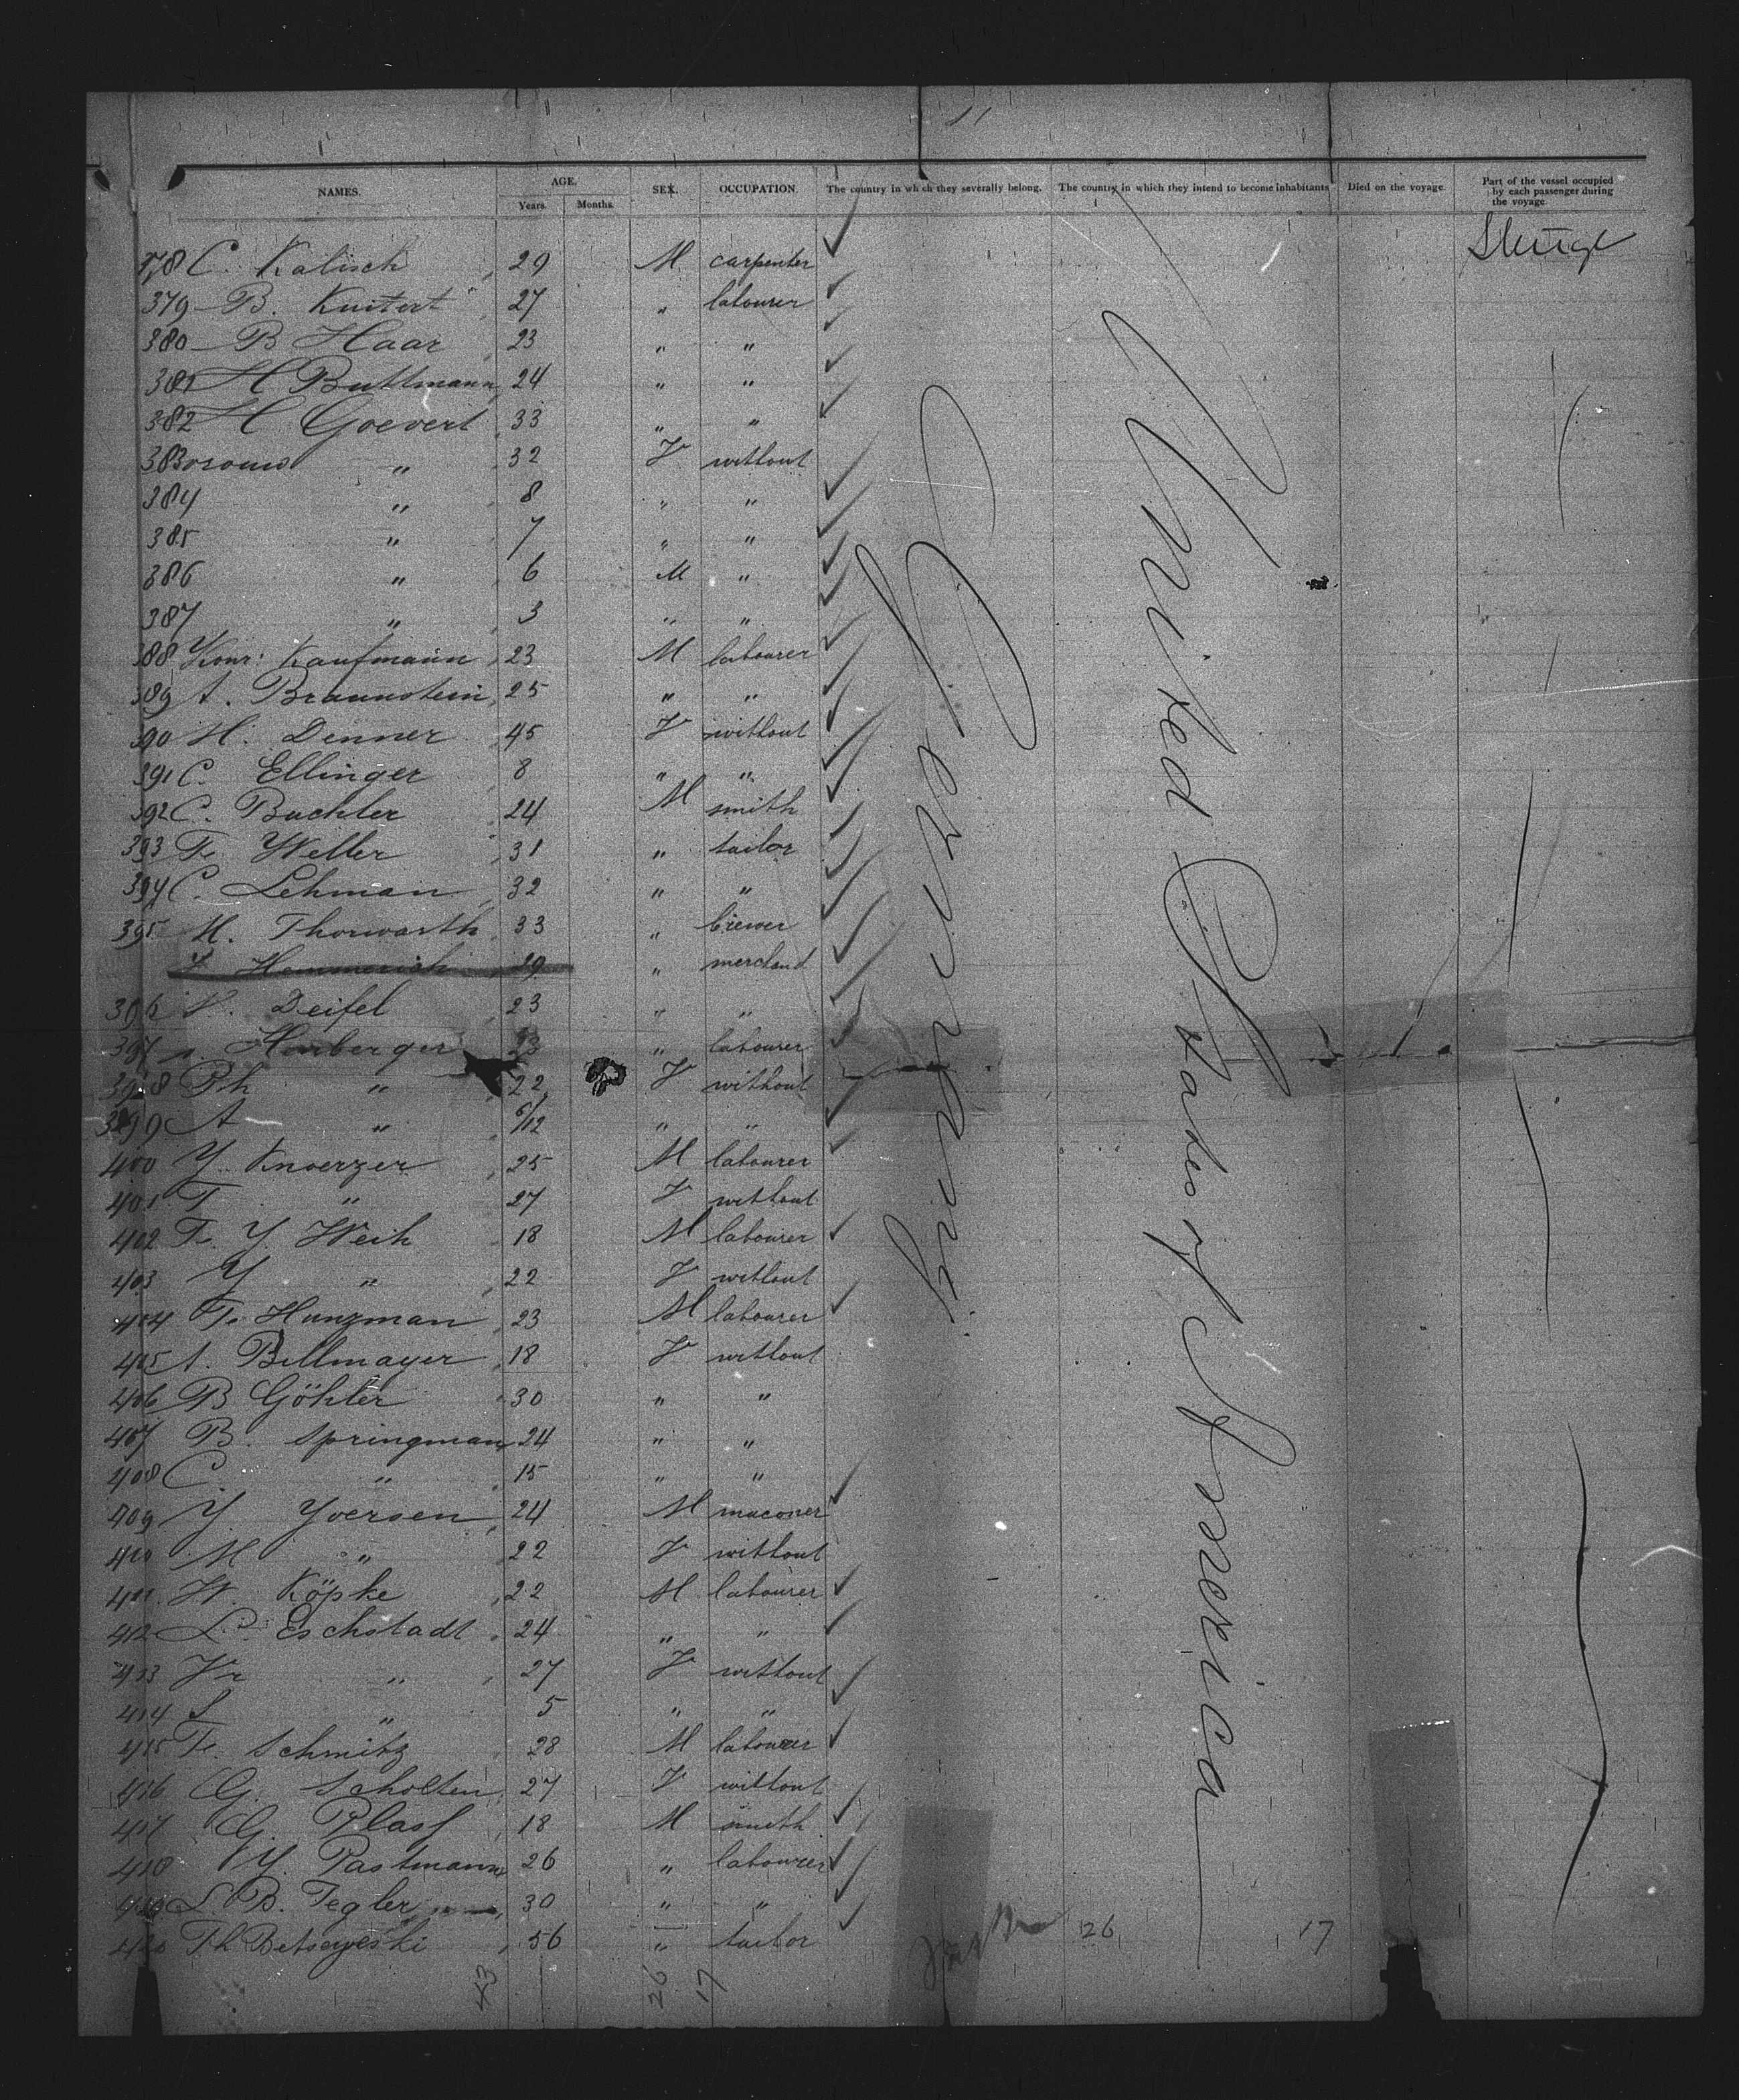 11
NAMES. AGE. Years. Months. SEX. OCCUPATION. The country in which they severally belong. The country in which they intend to become inhabitants Died on the voyage. Part of the vessel occupied by each passenger during the voyage.
378 C. Kalisch 29 M carpenter
379 B. Kuitert 27 " labourer
380 B Haar 23 " "
381 H Buttmann 24 " "
382 H Goevert 33 " "
383 " 32 V without
384 " 8 " "
385 " 7 " "
386 " 6 M "
387 " 3 " "
388 Konr: Kaufmann 23 M labourer
389 A. Braunstein 25 " "
390 H. Denner 45 V without
391 C. Ellinger 8 " "
392 C. Buchler 24 M smith
393 Fr. Weller 31 " tailor
394 C. Lehman 32 " "
395 H. Thorwarth 33 " brewer
Hemmerich 29 " merchand
396 Deifel 23 " "
397 Herberger 23 " labourer
398 Ph " 22 V without
399 A " 6/12 " "
400 Y. Knoerzer 25 M labourer
401 F " 27 V without
402 Fr. Y. Weih 18 M labourer
403 Y " 22 V without
404 Fr. Hunzman 23 M labourer
405 A. Billmayer 18 V without
406 B Göhler 30 " "
407 B. Springman 24 " "
408 C. " 15 " "
409 Y Yversen 24 M maconer
410 M " 22 V without
411. W. Köpke 22 M labourer
412 L. Eschstadt 24 " "
413 Vr " 27 V without
414 S " 5 " "
415 Fr. Schmitz 28 M labourer
416 G. Scholten 27 V without
417 G. Plass 18 M smith
418 Y. Pastmann 26 " labourer
419 L. B. Tegler 30 " "
420 Th Betseyeski 56 " tailor
Germany.
United States of America
26 17
43 26 17